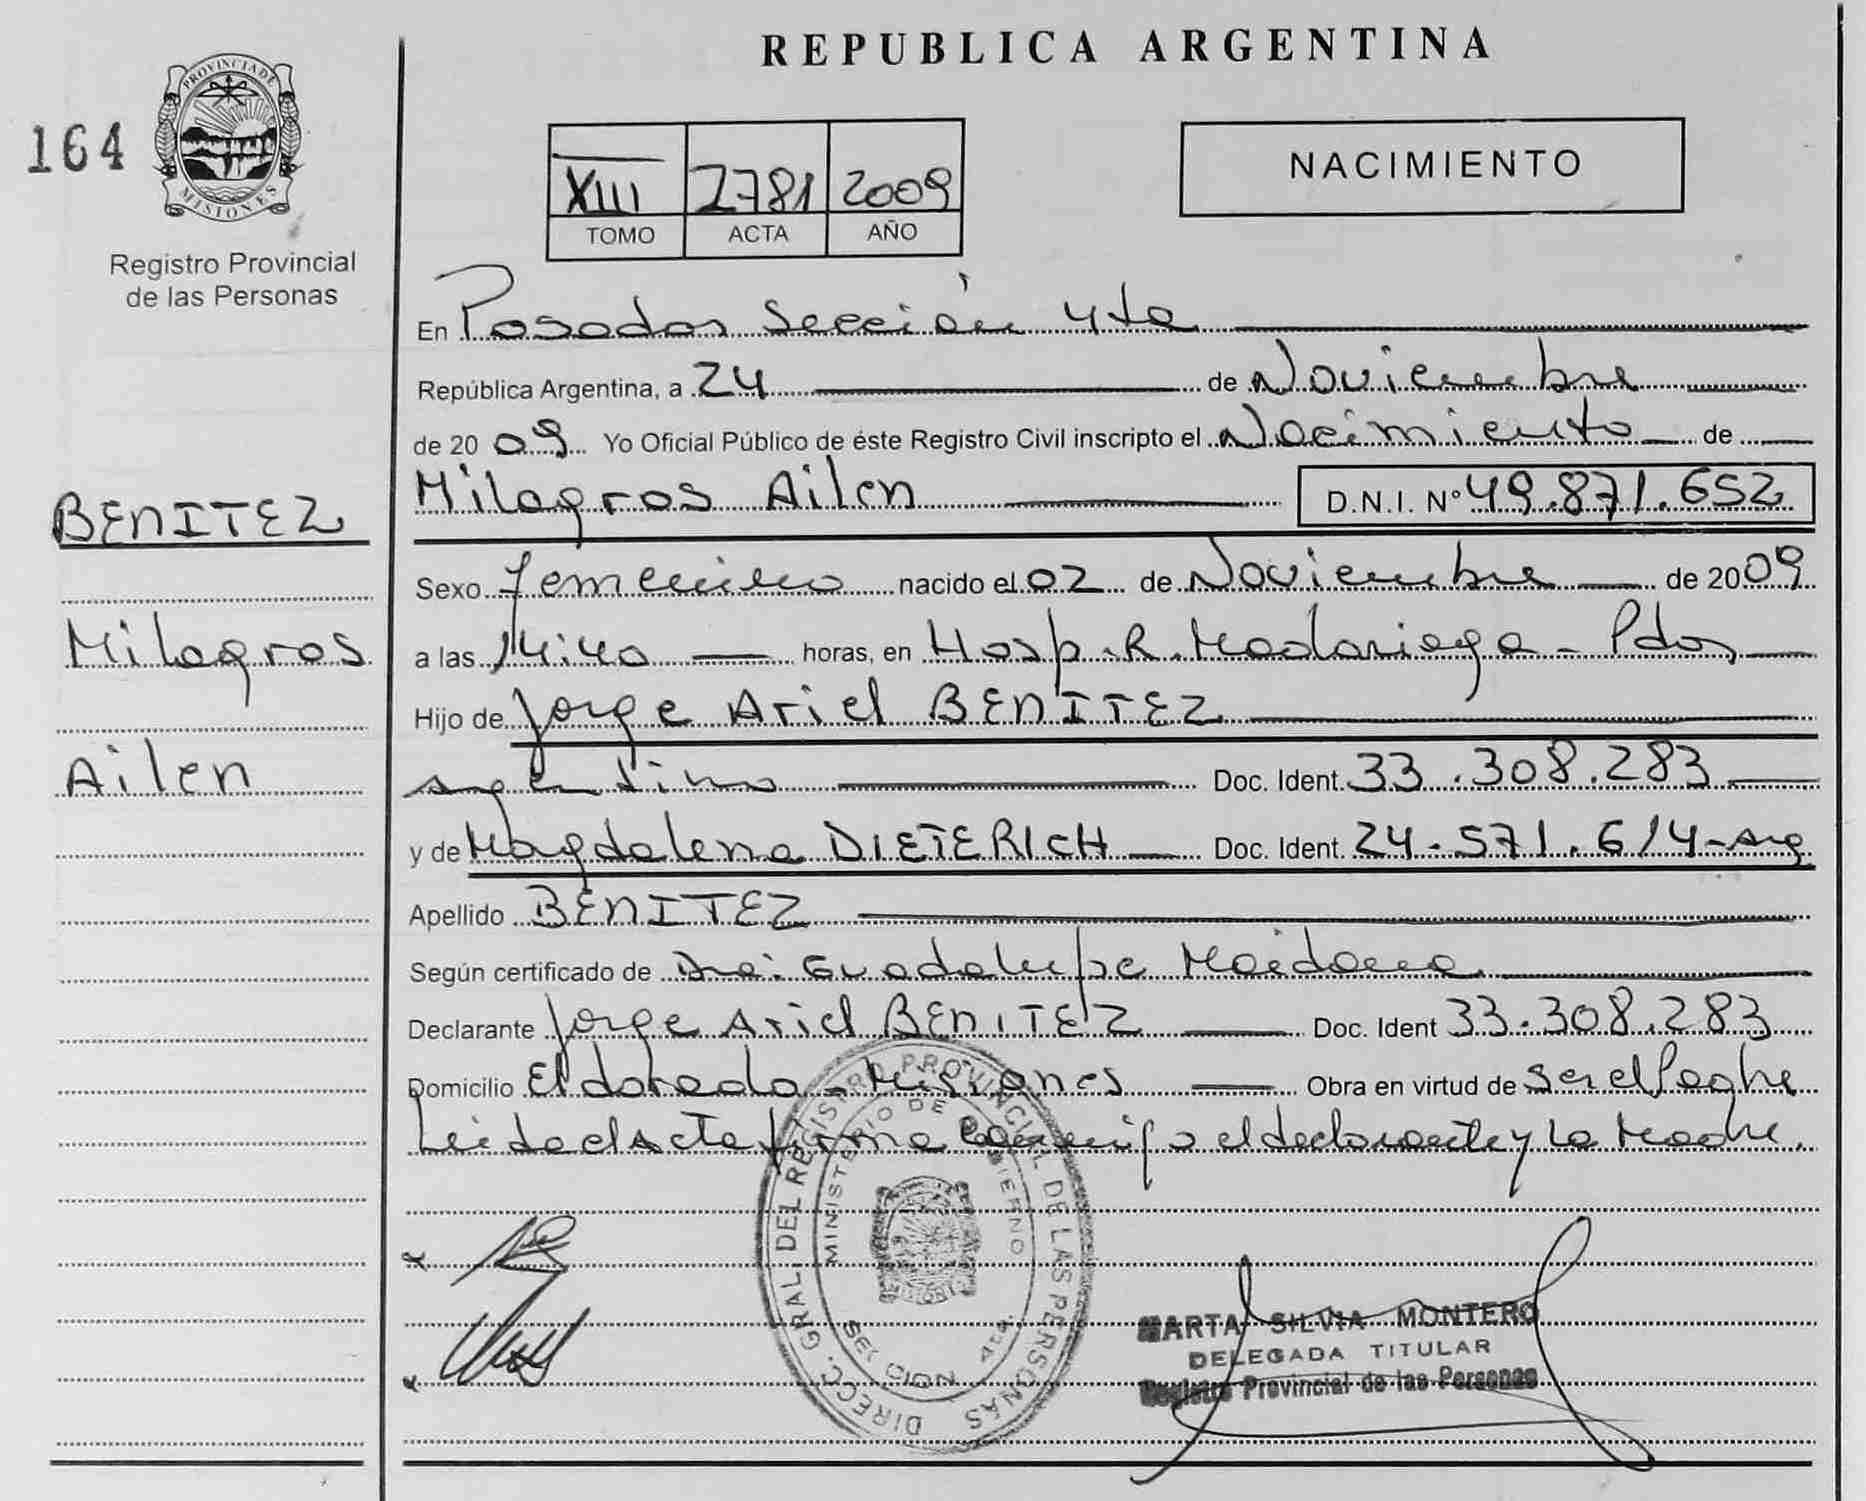 REPUBLICA ARGENTINA
164
PROVINCIA DE
MISIONES
Registro Provincial
de las Personas
NACIMIENTO
XIII 2781 2009
TOMO ACTA AÑO
En Posadas Sección 4ta
República Argentina, a 24 de Noviembre
de 2009 Yo Oficial Público de éste Registro Civil inscripto el Nacimiento de
Milagros Ailen D.N.I. Nº 49.871.652
BENITEZ
Milagros
Ailen
Sexo femenino nacido el 02 de Noviembre de 2009
a las 14:40 horas, en Hosp. R. Madariaga - Pdas
Hijo de Jorge Ariel BENITEZ
argentino Doc. Ident. 33.308.283
y de Magdalena DIETERICH Doc. Ident. 24.571.614-arg
Apellido BENITEZ
Según certificado de Dra: Guadalupe Maidana
Declarante Jorge Ariel BENITEZ Doc. Ident 33.308.283
Domicilio Eldorado - Misiones Obra en virtud de ser el Padre
Leida el Acta firma conmigo el declarante y La Madre.
DIRECC. GRAL. DEL REGISTRO PROVINCIAL DE LAS PERSONAS
MINISTERIO DE GOBIERNO
SECCION 4ta.
MARTA SILVIA MONTERO
DELEGADA TITULAR
Registro Provincial de las Personas